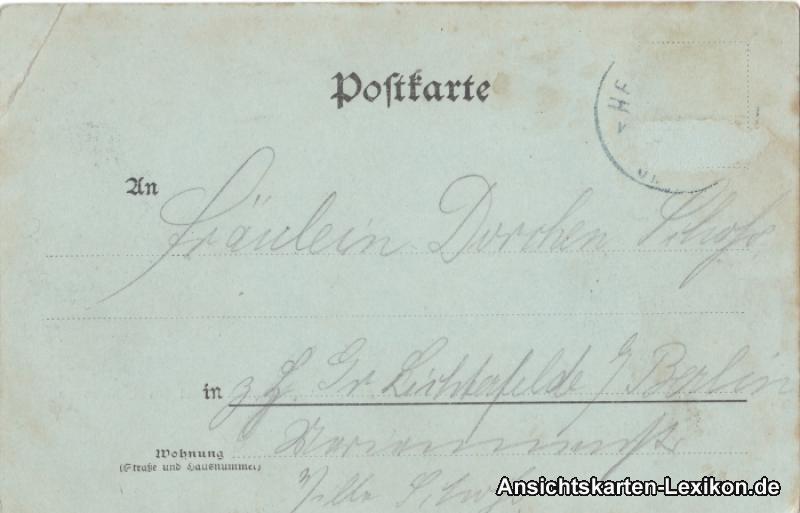 Postkarte
An
Fräulein Dorchen
in z. Z. Gr. Lichterfelde b/ Berlin
Wohnung
(Straße und Hausnummer)
Villa
Ansichtskarten-Lexikon.de